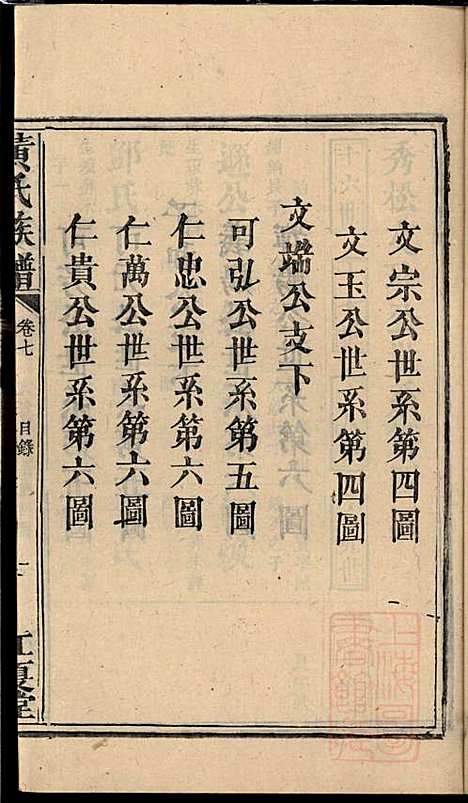 文宗公世系第四圖
文玉公世系第四圖
文端公支下
可弘公世系第五圖
仁忠公世系第六圖
仁萬公世系第六圖
仁貴公世系第六圖
黄氏族譜
卷七
目錄
江夏堂
上海圖書館藏